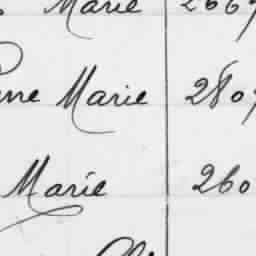 Marie 2667
Marie 2807
Marie 260